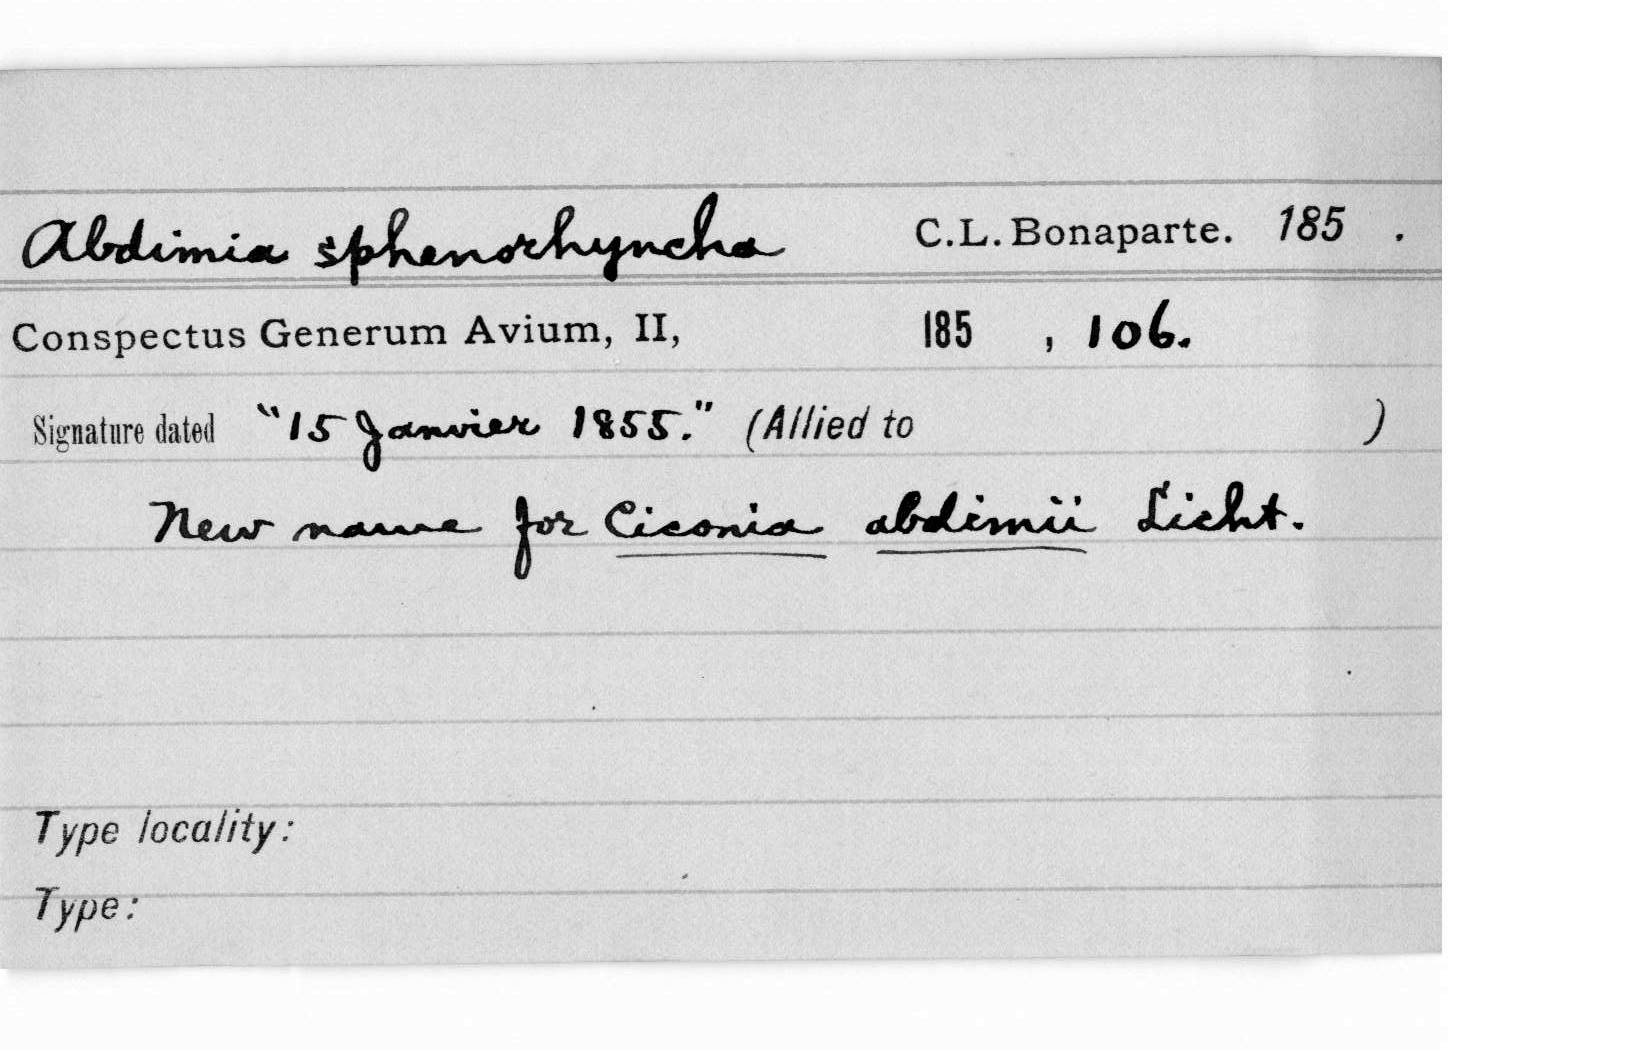 Abdimia sphenorhyncha C.L. Bonaparte. 185 .
Conspectus Generum Avium, II, 185 , 106.
Signature dated "15 Janvier 1855." (Allied to )
New name for Ciconia abdimii Licht.
Type locality:
Type: